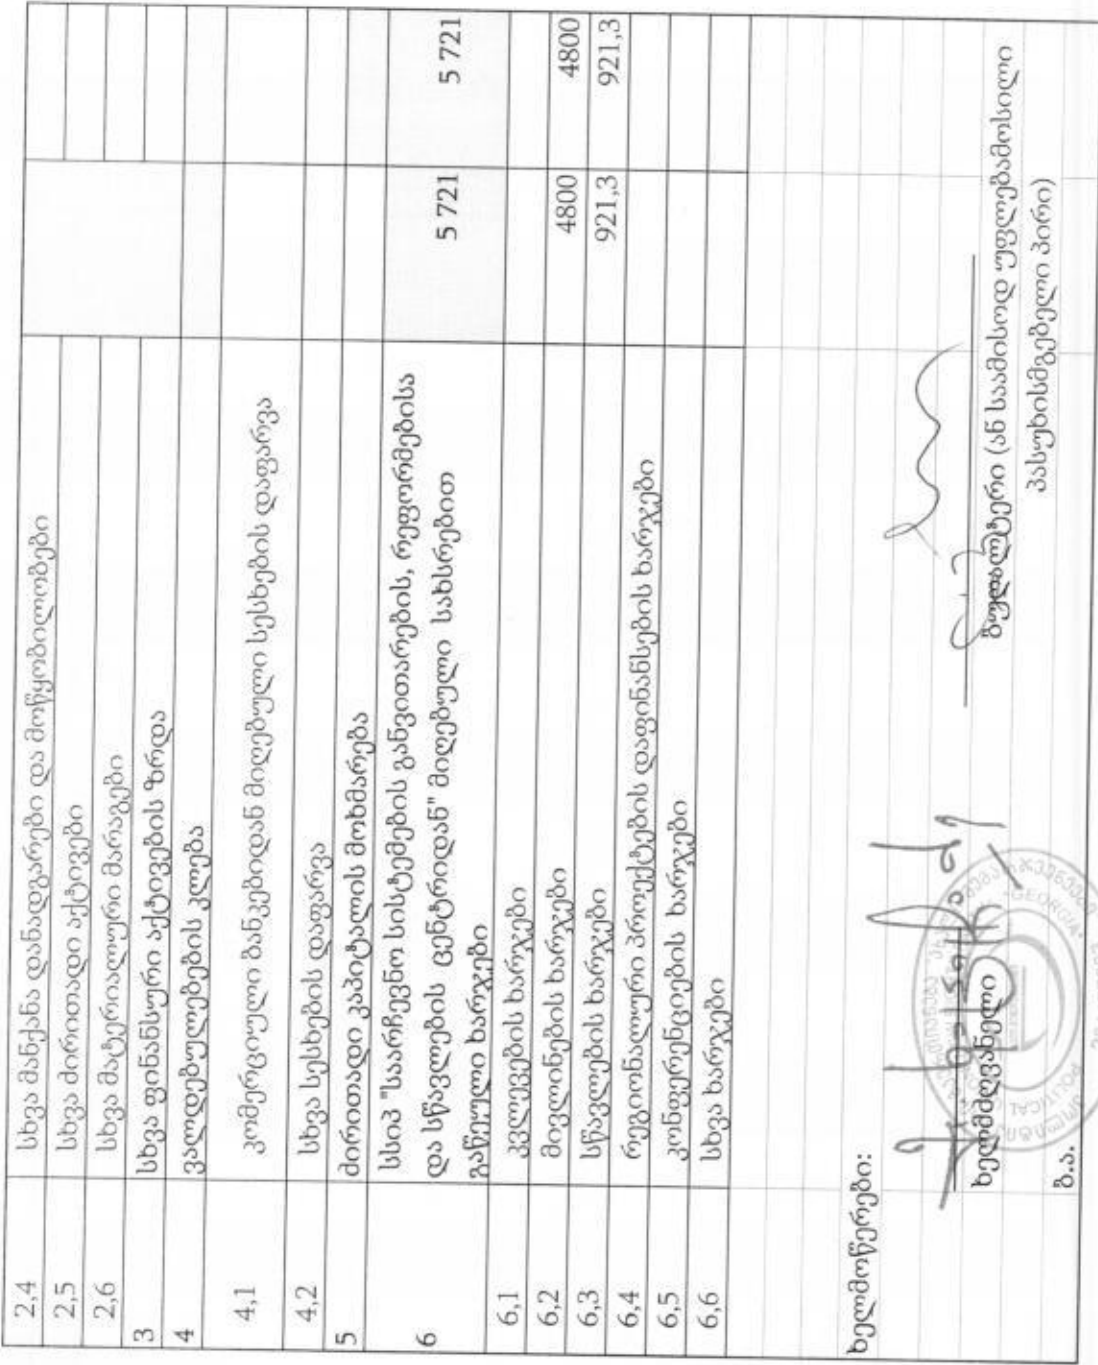 2,4 სხვა მანქანა დანადგარები და მოწყობილობები
2,5 სხვა ძირითადი აქტივები
2,6 სხვა მატერიალური მარაგები
3 სხვა ფინანსური აქტივების ზრდა
4 ვალდებულებების კლება
4,1 კომერციული ბანკებიდან მიღებული სესხების დაფარვა
4,2 სხვა სესხების დაფარვა
5 ძირითადი კაპიტალის მოხმარება
სსიპ "საარჩევნო სისტემების განვითარების, რეფორმებისა
6 და სწავლების ცენტრიდან" მიღებული სახსრებით 5 721 5 721
გაწეული ხარჯები
6,1 კვლევების ხარჯები
6,2 მივლინების ხარჯები 4800 4800
6,3 სწავლების ხარჯები 921,3 921,3
6,4 რეგიონალური პროექტების დაფინანსების ხარჯები
6,5 კონფერენციების ხარჯები
6,6 სხვა ხარჯები
ხელმოწერები:
ხელმძღვანელი ბუღალტერი (ან საამისოდ უფლებამოსილი
პასუხისმგებელი პირი)
ბ.ა.
"GEORGIA"
POLITICAL